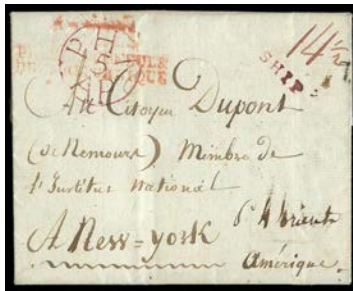 PH
5
AP
SHIP
14½
Au Citoyen Dupont
(De Nemours) Membre de
l'Institut national
A New=york
Amérique